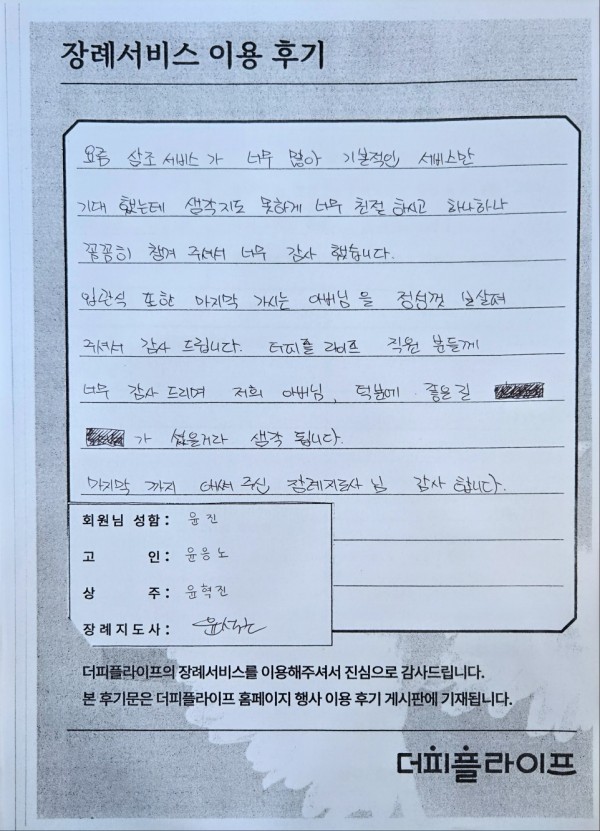 장례서비스 이용 후기
요즘 상조 서비스가 너무 많아 기본적인 서비스만
기대 했는데 생각지도 못하게 너무 친절 하시고 하나하나
꼼꼼히 챙겨 주셔서 너무 감사 했습니다.
입관식 또한 마지막 가시는 아버님 을 정성껏 보살펴
주셔서 감사 드립니다. 더피플 라이프 직원 분들께
너무 감사 드리며 저희 아버님, 덕분에 좋은길
가 셨을거라 생각 됩니다.
마지막 까지 애써 주신 장례지도사 님 감사 합니다.
회원님 성함 : 윤진
고 인 : 윤응노
상 주 : 윤혁진
장례지도사 :
더피플라이프의 장례서비스를 이용해주셔서 진심으로 감사드립니다.
본 후기문은 더피플라이프 홈페이지 행사 이용 후기 게시판에 기재됩니다.
더피플라이프